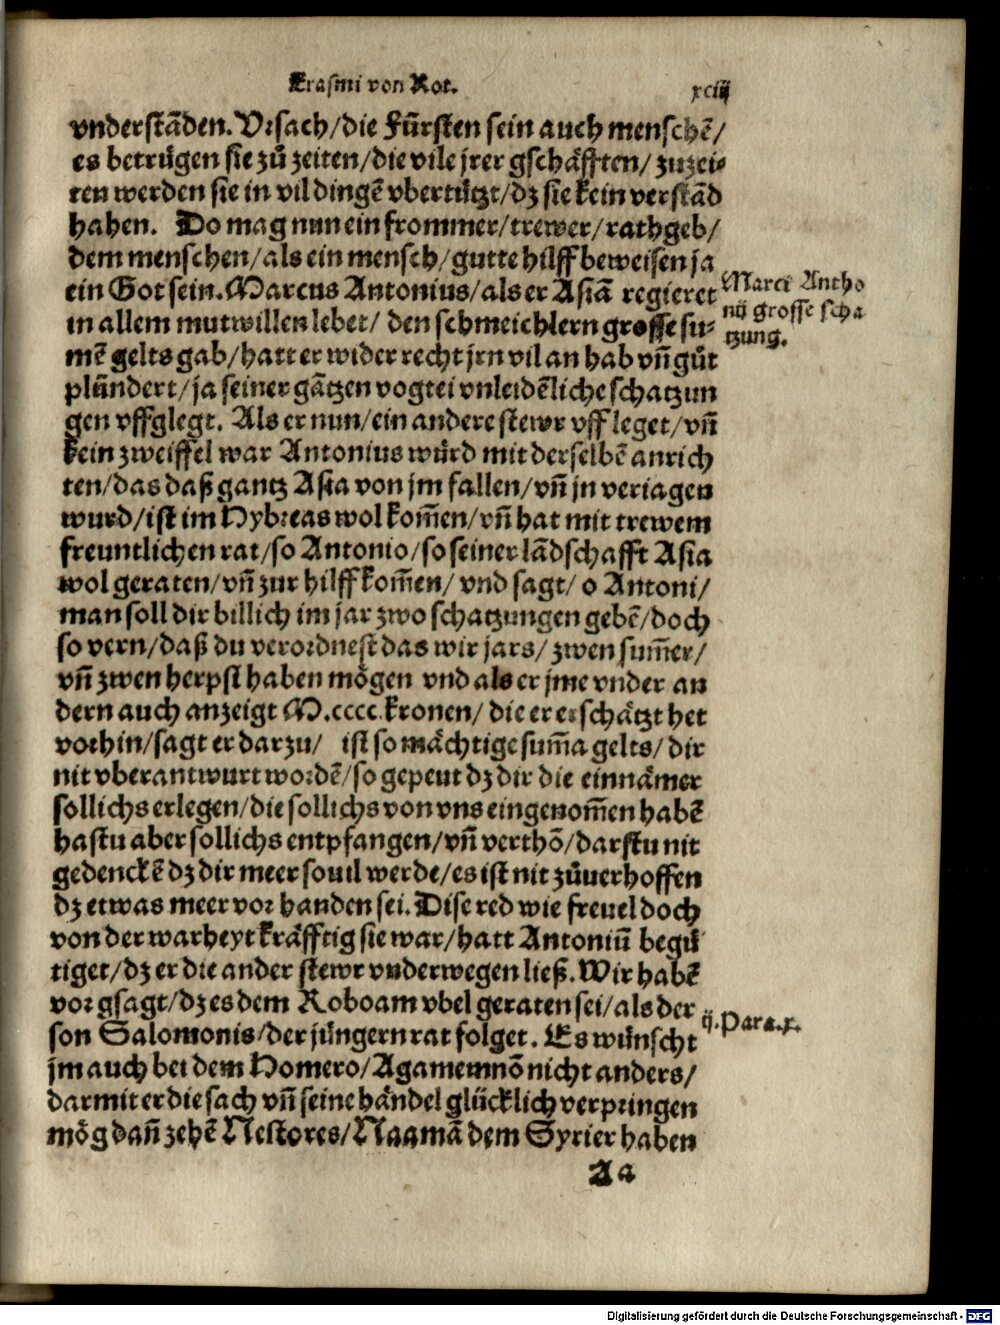 Erasmi von Rot. xciij
vnderstādẽ. Vrsach/die Fürsten sein auch menschẽ/
es betrügen sie zů zeiten/die vile jrer gschäfften/zuzei-
ten werden sie in vil dingẽ vbertützt/dz sie kein verstād
haben. Do mag nun ein frommer/trewer/rathgeb/
dem menschen/als ein mensch/gutte hilff beweisen ja
ein Got sein. Marcus Antonius/als er Asiā regieret
in allem mutwillen lebet/ den schmeichlern grosse su-
mẽ gelts gab/hatt er wider recht jrn vil an hab vñ gůt
plündert/ja seiner gātzen vogtei vnleidẽliche schatzun
gen vffglegt. Als er nun/ein andere stewr vff leget/vñ
kein zweiffel war Antonius würd mit derselbẽ anrich
ten/das daß gantz Asia von jm fallen/vñ jn veriagen
wurd/ist im Hybreas wol kom̃en/vñ hat mit trewem
freuntlichen rat/so Antonio/so seiner lādschafft Asia
wol geraten/vñ zur hilff kom̃en/ vnd sagt/ o Antoni/
man soll dir billich im jar zwo schatzungen gebẽ/doch
so vern/daß du verordnest das wir jars/ zwen sum̃er/
vñ zwen herpst haben mögen vnd als er jme vnder an
dern auch anzeigt M.cccc kronen/ die er erschätzt het
vorhin/sagt er darzu/ ist so mächtige sum̃a gelts/ dir
nit vberantwurt wordẽ/so gepeut dz dir die einnämer
sollichs erlegen/die sollichs von vns eingenom̃en habẽ
hastu aber sollichs entpfangen/vñ verthō/darstu nit
gedenckẽ dz dir meer souil werde/es ist nit zůuerhoffen
dz etwas meer vor handen sei. Dise red wie freuel doch
von der warheyt kräfftig sie war/hatt Antoniū begü
tiget/dz er die ander stewr vnderwegen ließ. Wir habẽ
vor gsagt/dz es dem Roboam vbel geraten sei/als der
son Salomonis/der jüngern rat folget. Es wünscht
jm auch bei dem Homero/Agamemnō nicht anders/
darmit er die sach vñ seine händel glücklich verpringen
mög dañ zehẽ Nestores/Naamā dem Syrier haben
Aa
Marci Antho
nij grosse scha
tzung.
ij.Para.x.
Digitalisierung gefördert durch die Deutsche Forschungsgemeinschaft - DFG